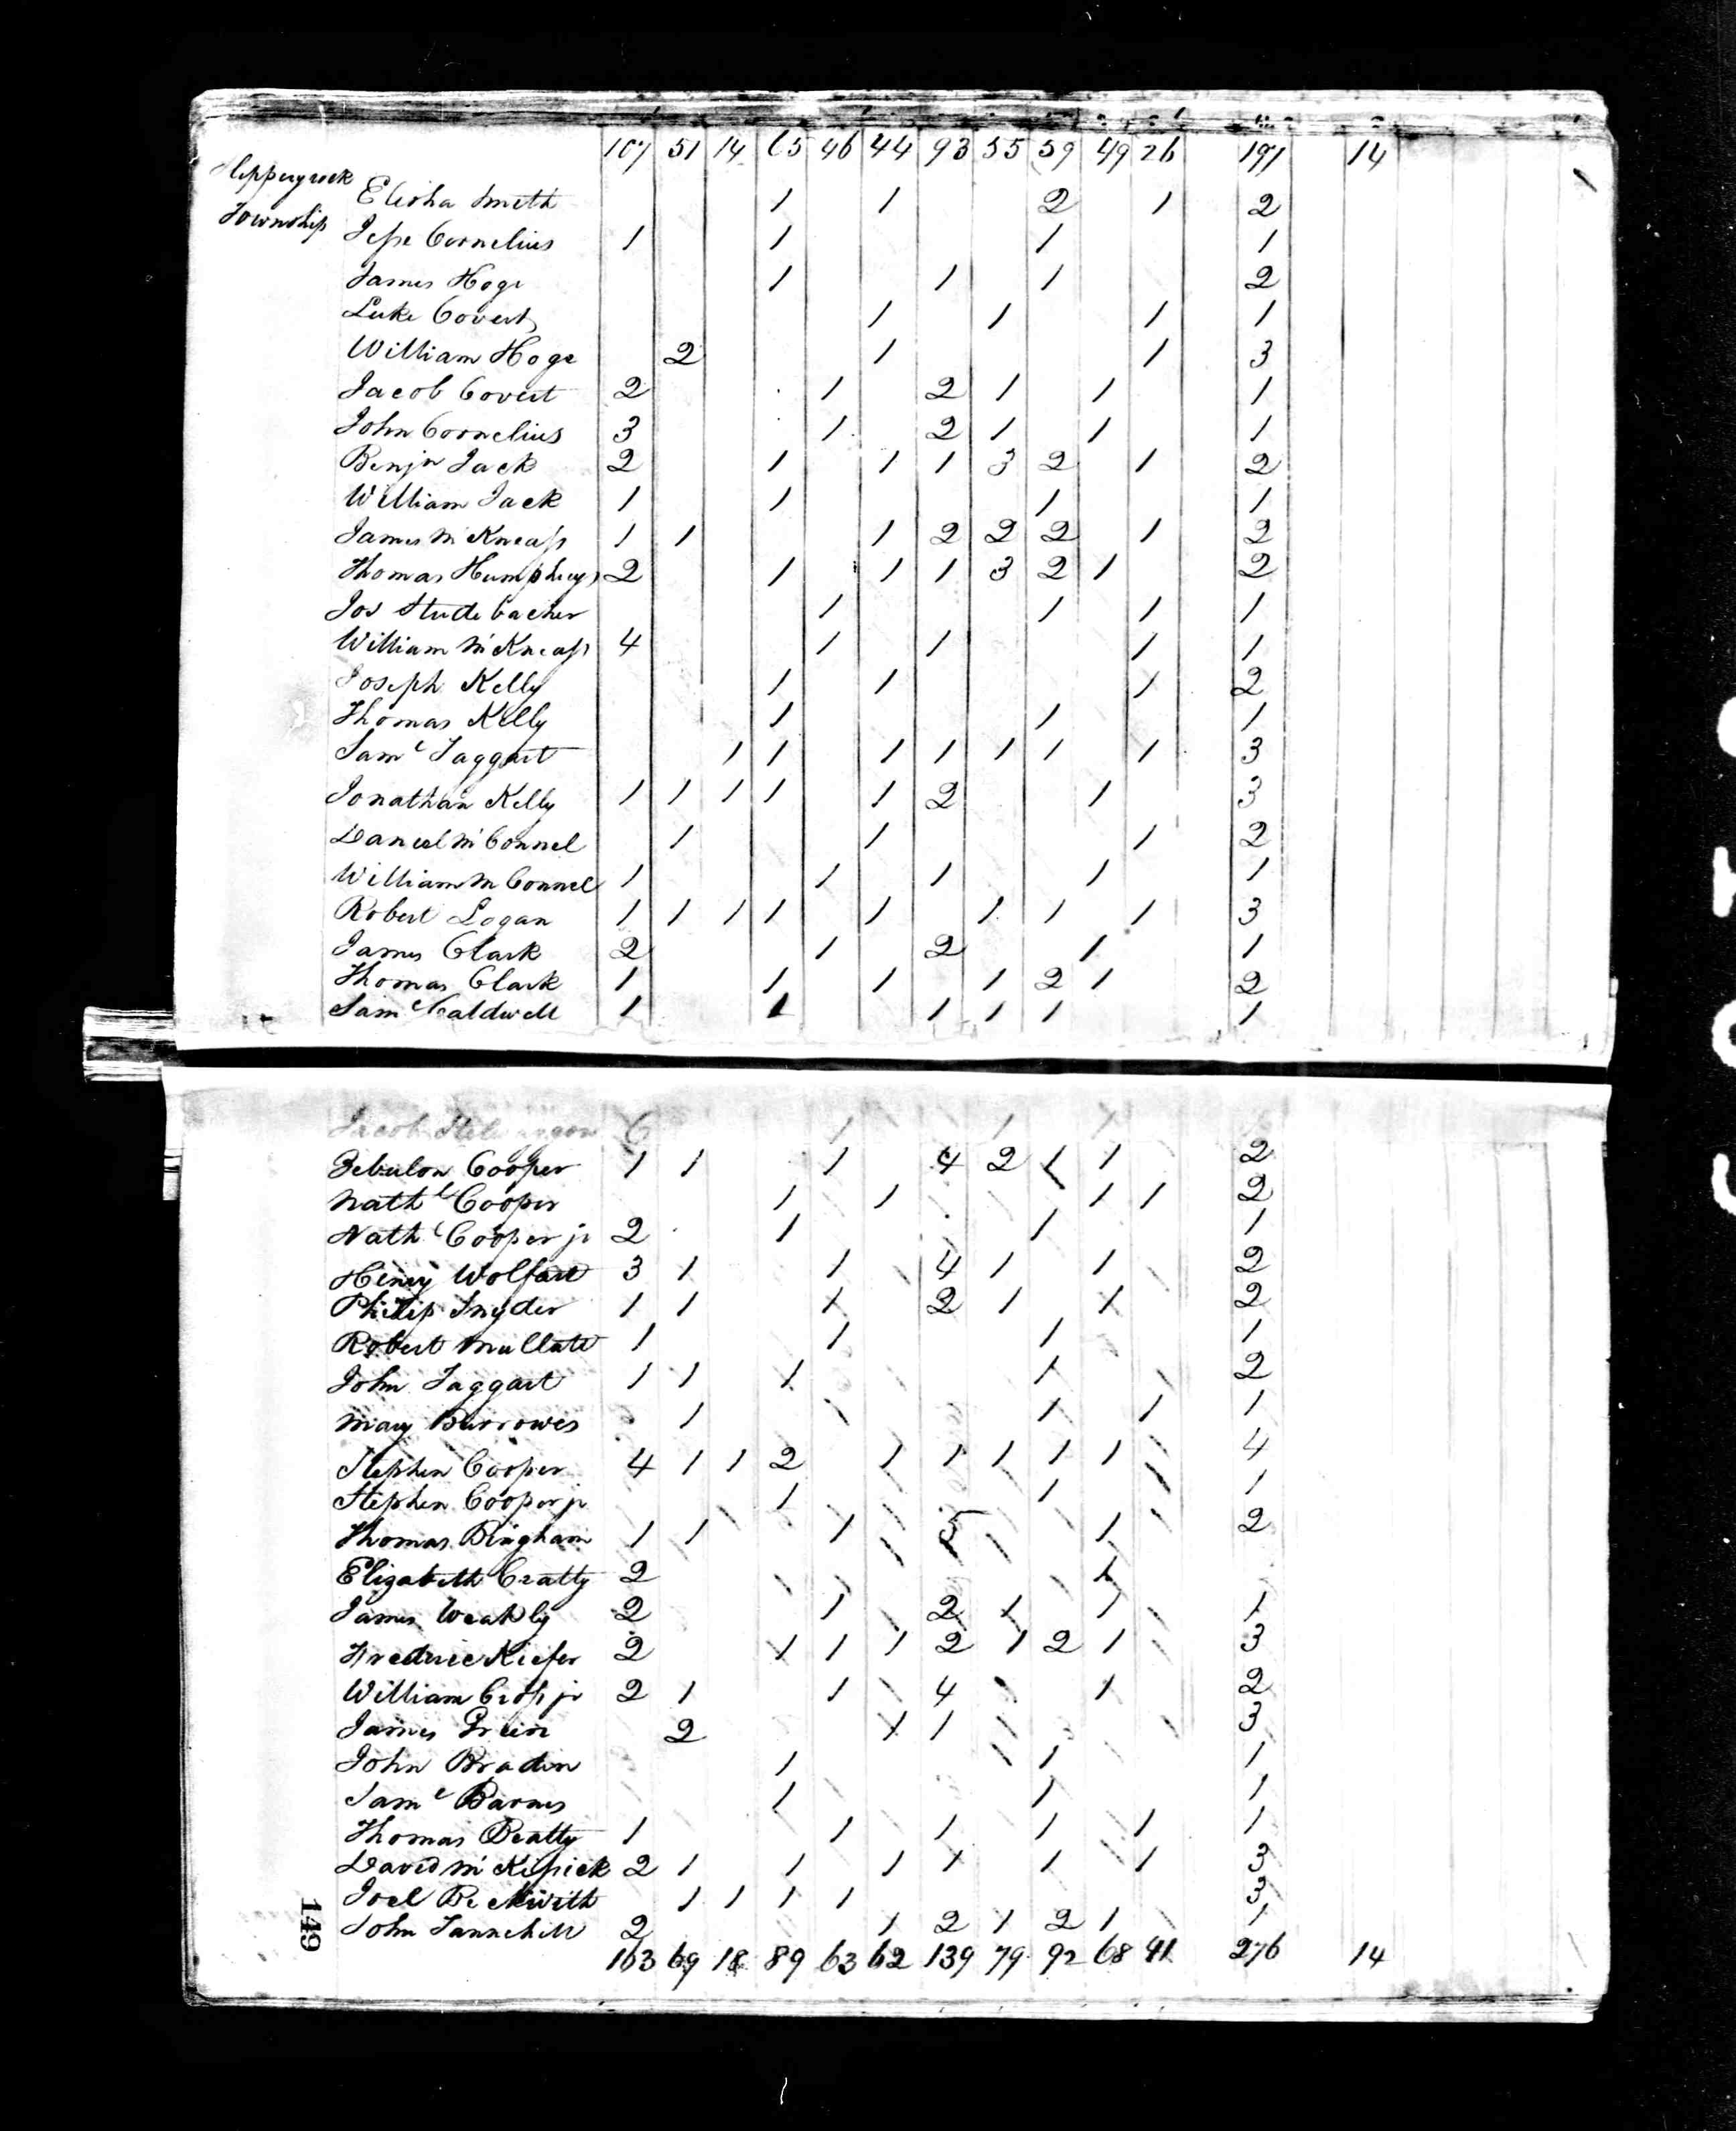 107 51 14 65 46 44 93 55 59 49 26 197 14
Slipperyrock
Township
Elisha Smith 1 1 2 1 2
Jesse Cornelius 1 1 1 1
James Hoge 1 1 1 2
Luke Covert 1 1 1 1
William Hoge 2 1 1 3
Jacob Covert 2 1 2 1 1 1
John Cornelius 3 1 2 1 1 1
Benjn Jack 2 1 1 1 3 2 1 2
William Jack 1 1 1 1
James McKneass 1 1 1 2 2 2 1 2
Thomas Humphreys 2 1 1 1 3 2 1 2
Jos Studebacher 1 1 1 1
William McKneass 4 1 1 1 1
Joseph Kelly 1 1 1 2
Thomas Kelly 1 1 1
Saml Taggart 1 1 1 1 1 1 1 3
Jonathan Kelly 1 1 1 1 1 2 1 3
Daniel McConnel 1 1 1 2
William McConnel 1 1 1 1 1
Robert Logan 1 1 1 1 1 1 1 1 3
James Clark 2 1 2 1 1
Thomas Clark 1 1 1 1 2 1 2
Saml Caldwell 1 1 1 1 1 1
Jacob 6 1 1 1
Zebulon Cooper 1 1 1 4 2 1 1 2
Nathl Cooper 1 1 1 1 2
Nathl Cooper jr 2 1 1 1
Henry Wolfart 3 1 1 4 1 1 2
Philip Snyder 1 1 1 2 1 1 2
Robert 1 1 1 1
John Taggart 1 1 1 1 2
Mary Burrowes 1 1 1 1 1
Stephen Cooper 4 1 1 2 1 1 1 1 1 4
Stephen Cooper jr 1 1 1
Thomas Bingham 1 1 1 5 1 2
Elizabeth Cratty 2 1
James Weakly 2 1 2 1 1 1
Frederic Kiefer 2 1 1 1 2 1 2 1 3
William Cross jr 2 1 1 4 1 2
James 2 1 1 3
John Braden 1 1 1
Saml Barnes 1 1 1
Thomas Beatty 1 1 1 1 1 1
David McKissick 2 1 1 1 1 1 1 3
Joel Beckwith 1 1 1 1 3
John Tannehill 2 1 2 1 2 1 1
163 69 18 89 63 62 139 79 92 68 41 276 14
149